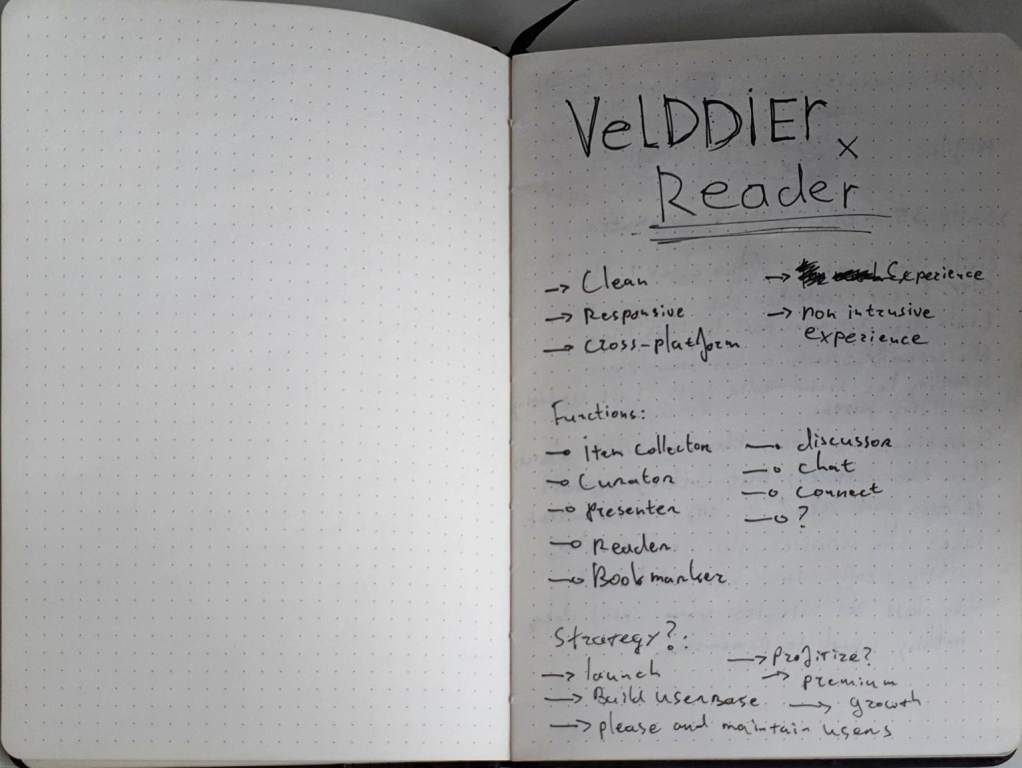 VeLDDiEr x
Reader
→ Clean
→ Responsive
→ cross-platform
→ Experience
→ non intrusive
experience
Functions:
—o item collector
—o Curator
—o presenter
—o Reader
—o Bookmarker
—o discussor
—o chat
—o connect
—o ?
Strategy?:
→ launch
→ Build userBase
→ please and maintain users
→ Profitize?
→ premium
→ growth